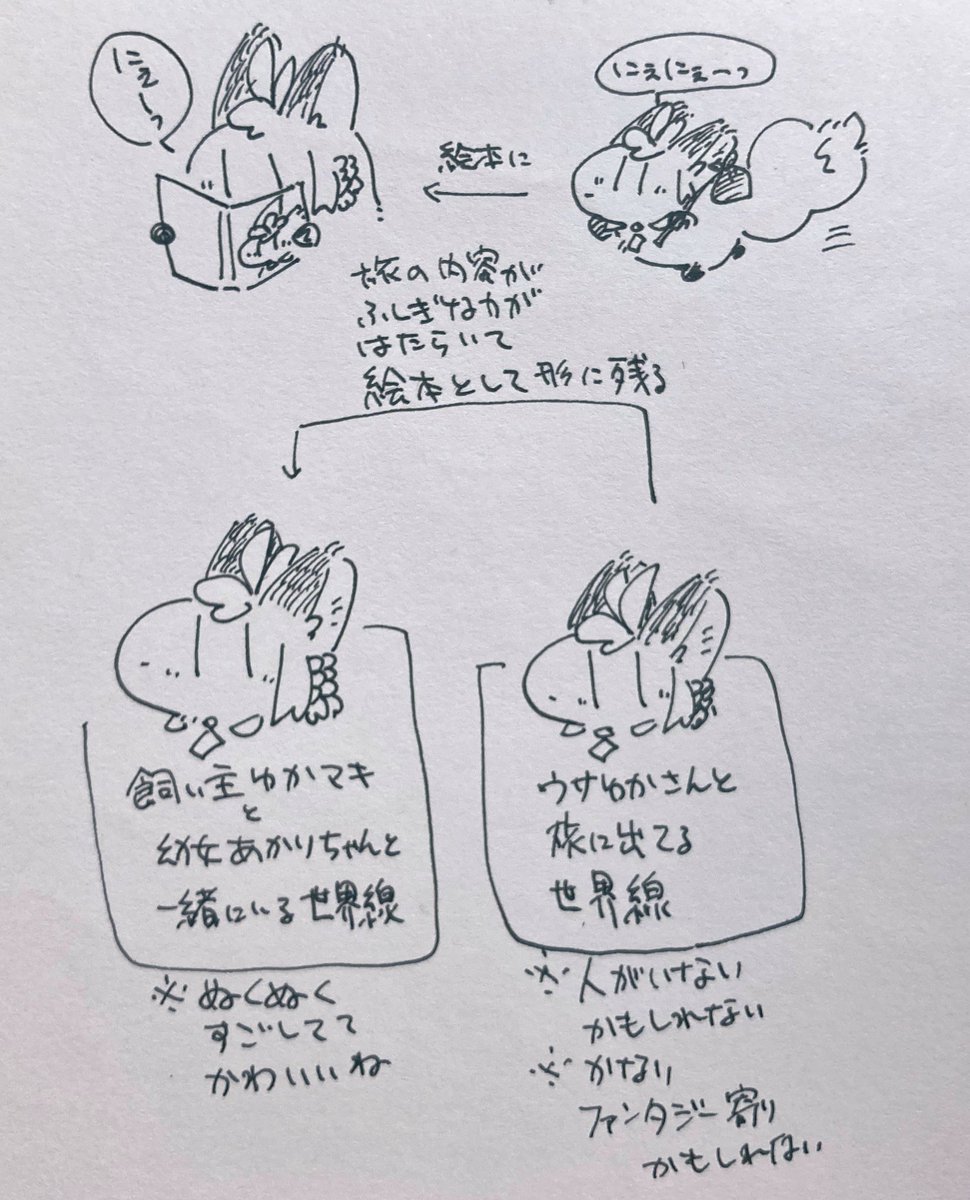 にえーっ
にえにえーっ
絵本に
旅の内容が
ふしぎな力が
はたらいて
絵本として形に残る
飼い主ゆかマキ
と
幼女あかりちゃんと
一緒にいる世界線
※ぬくぬく
すごしてて
かわいいね
ウサゆかさんと
旅に出てる
世界線
※人がいない
かもしれない
※かなり
ファンタジー寄り
かもしれない